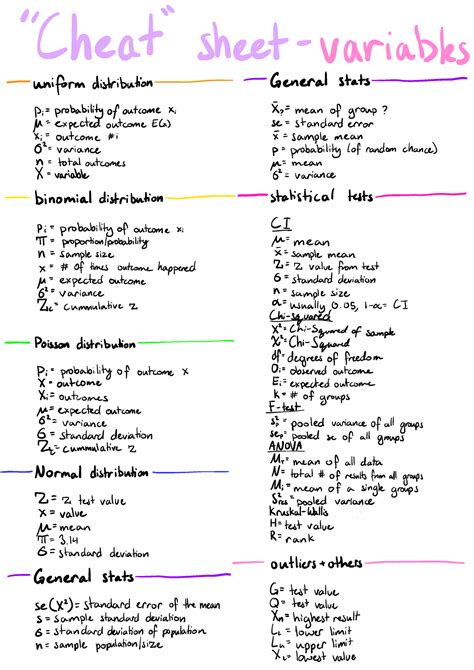 "Cheat" sheet - variables
uniform distribution
Pi = probability of outcome xi
μ = expected outcome E(x)
xi = outcome #i
σ² = variance
n = total outcomes
X = variable
binomial distribution
Pi = probability of outcome xi
π = proportion/probability
n = sample size
x = # of times outcome happened
μ = expected outcome
σ² = variance
Zc = cummulative z
Poisson distribution
Pi = probability of outcome x
X = outcome
Xi = outcomes
μ = expected outcome
σ² = variance
σ = standard deviation
Zc = cummulative z
Normal distribution
Z = z test value
X = value
μ = mean
π = 3.14
σ = standard deviation
General stats
se(x̄) = standard error of the mean
s = sample standard deviation
σ = standard deviation of population
n = sample population/size
General stats
x̄? = mean of group ?
se = standard error
x̄ = sample mean
p = probability (of random chance)
μ = mean
σ² = variance
statistical tests
CI
μ = mean
x̄ = sample mean
Z = z value from test
σ = standard deviation
n = sample size
α = usually 0.05, 1-α = CI
Chi-squared
X² = Chi-Squared of sample
χ² = Chi-Squared
df = degrees of freedom
Oi = observed outcome
Ei = expected outcome
k = # of groups
F-test
s²p = pooled variance of all groups
sep = pooled se of all groups
ANOVA
MT = mean of all data
N = total # of results from all groups
Mi = mean of a single groups
S²res = pooled variance
Kruskal-Wallis
H = test value
R = rank
outliers + others
G = test value
Q = test value
Xn = highest result
L = lower limit
L = upper limit
X = lowest value